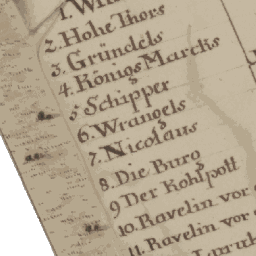 1.
2. Hohe Thors
3. Gründels
4. Königs Marcks
5 Schipper
6. Wrangels
7. Nicolaus
8. Die Burg
9 Der Kohlpott
10. Ravelin vor
11. Ravelin vor